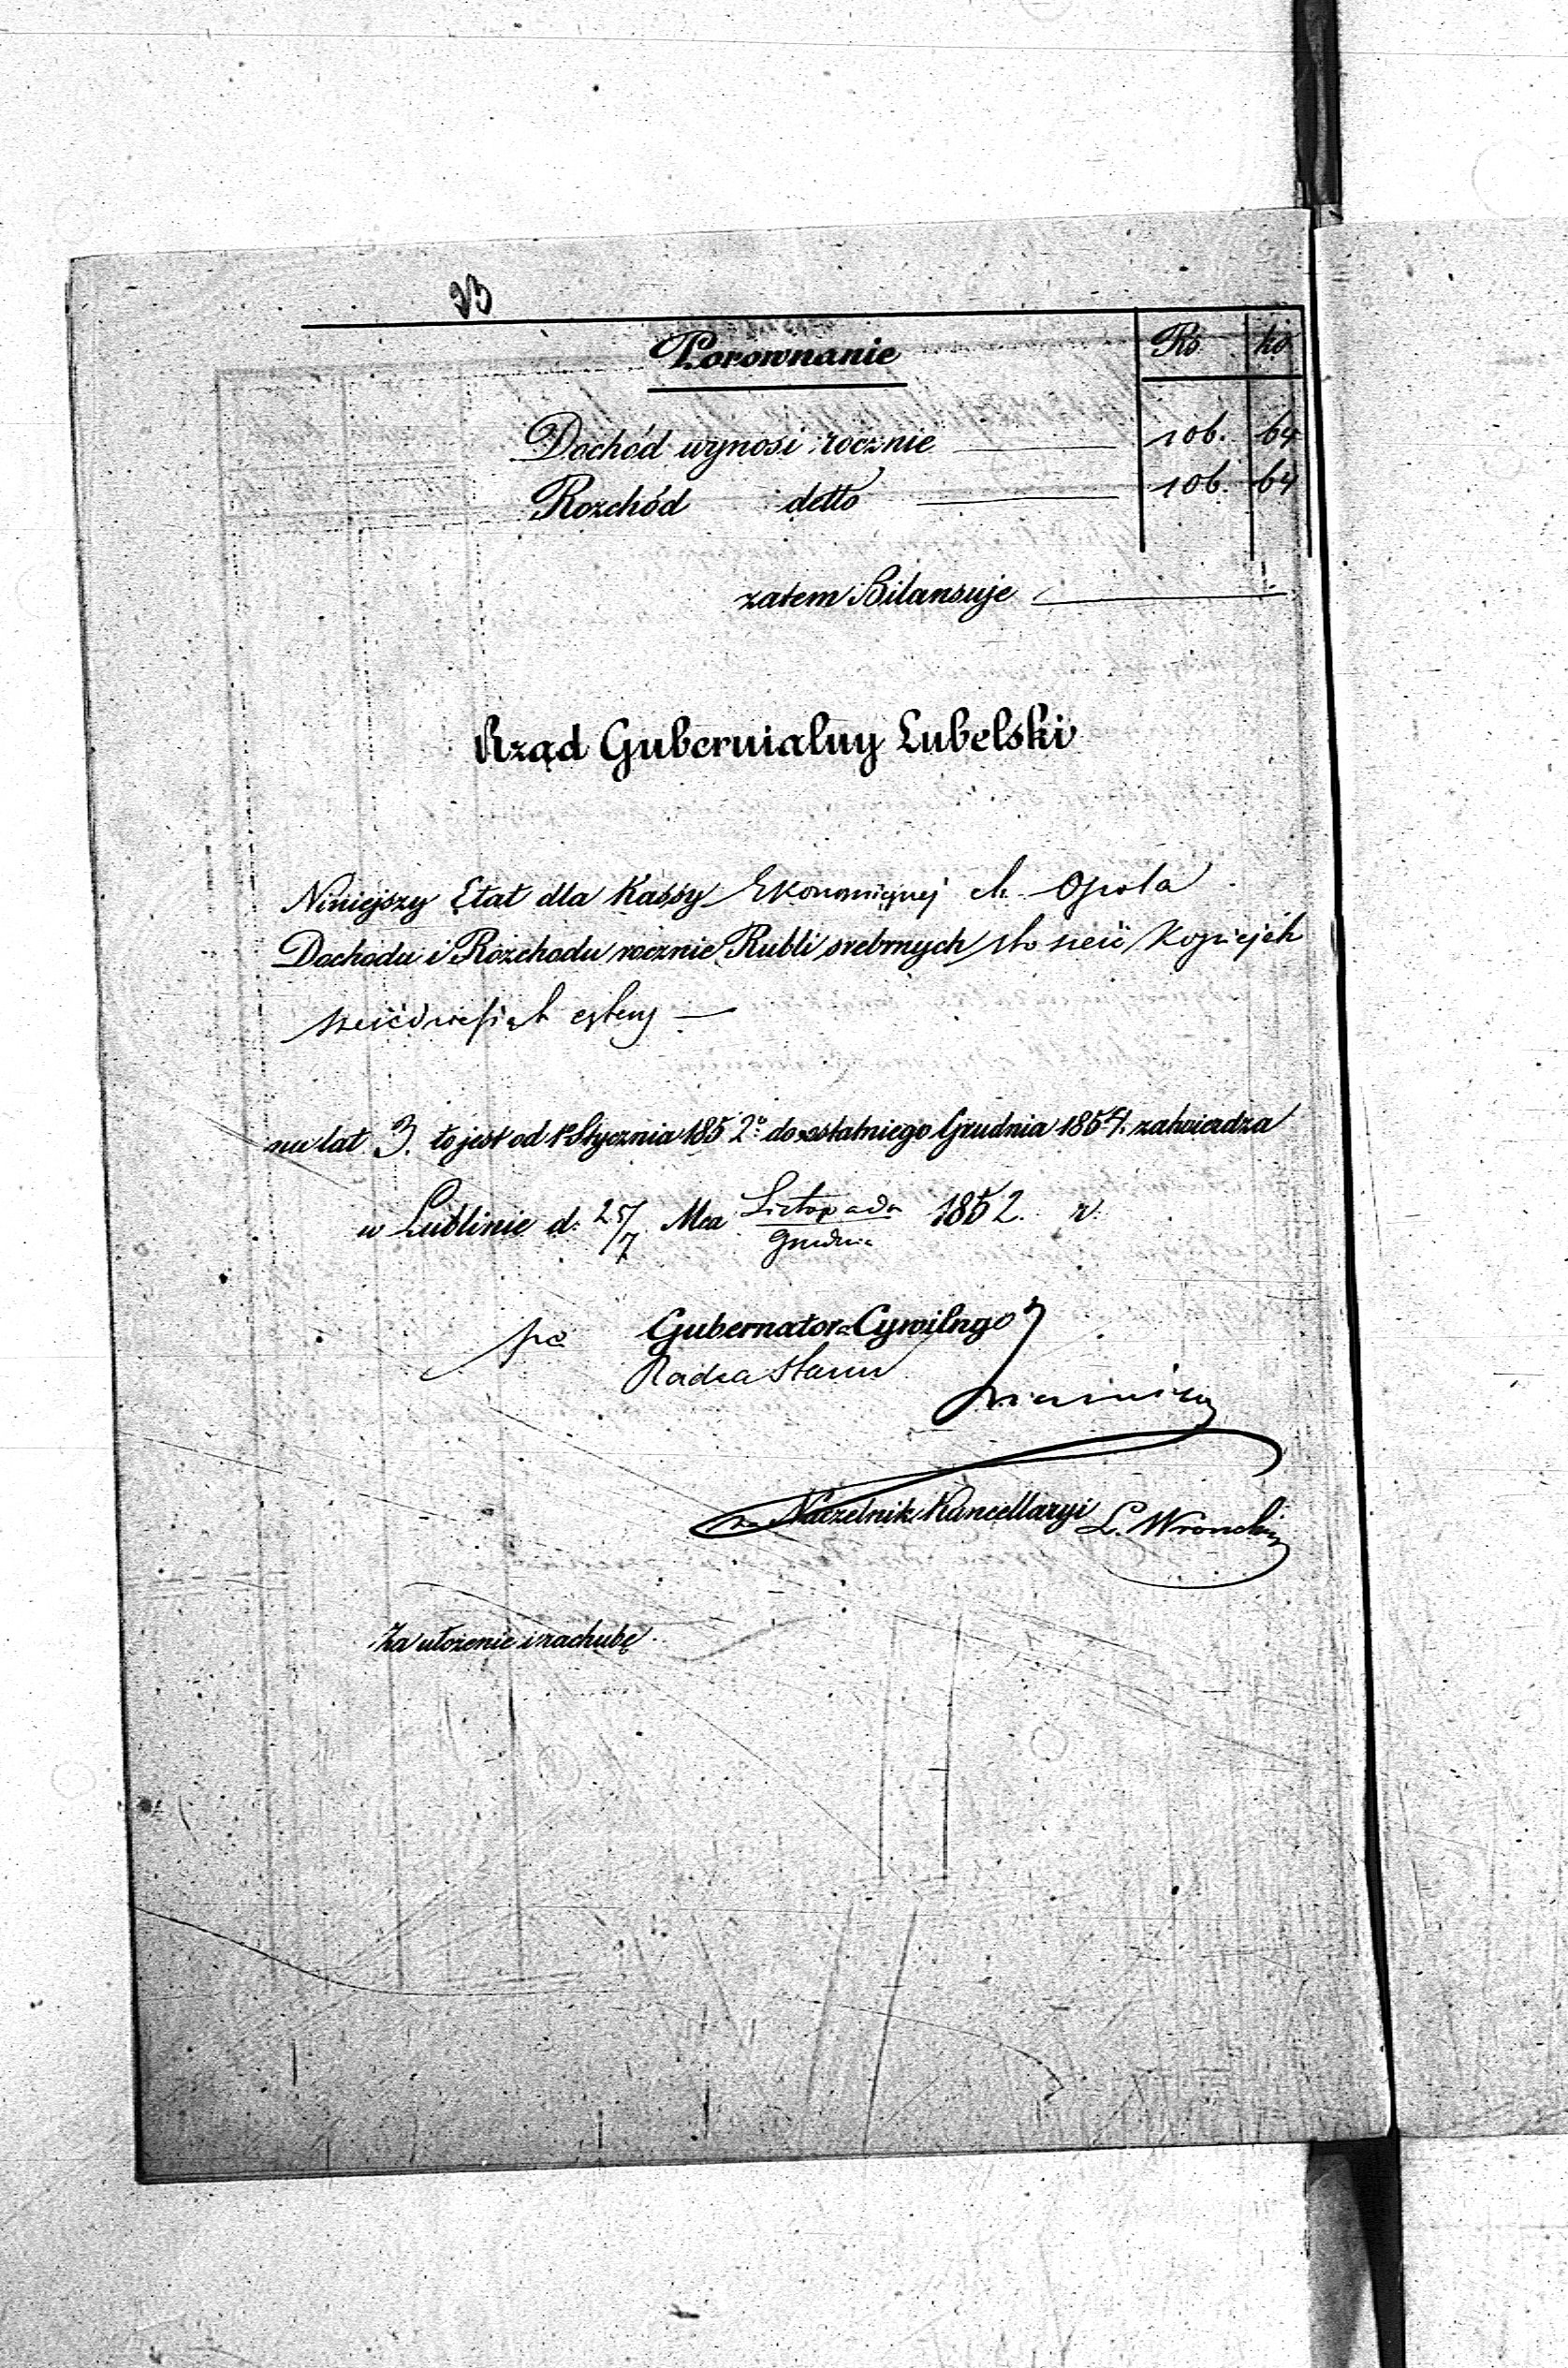 Porownanie Rs ko
Dochód wynosi rocznie 106. 64
Rozchód detto 106. 64
zatem Bilansuje
Rząd Gubernialny Lubelski
Niniejszy Etat dla Kassy Ekonomicznej m. Opola
Dochodu i Rozchodu rocznie Rubli srebrnych sto sześć Kopiejek
sześćdziesiąt cztery —
na lat 3. to jest od 1º Stycznia 1852º do ostatniego Grudnia 1854. zatwierdza
w Lublinie d. 25/7 Mca Listopada/Grudnia 1852. r.
po Gubernatora Cywilngo
Radca Stanu
Naczelnik Kancellaryi L. Wronski
Za ułożenie i rachubę.